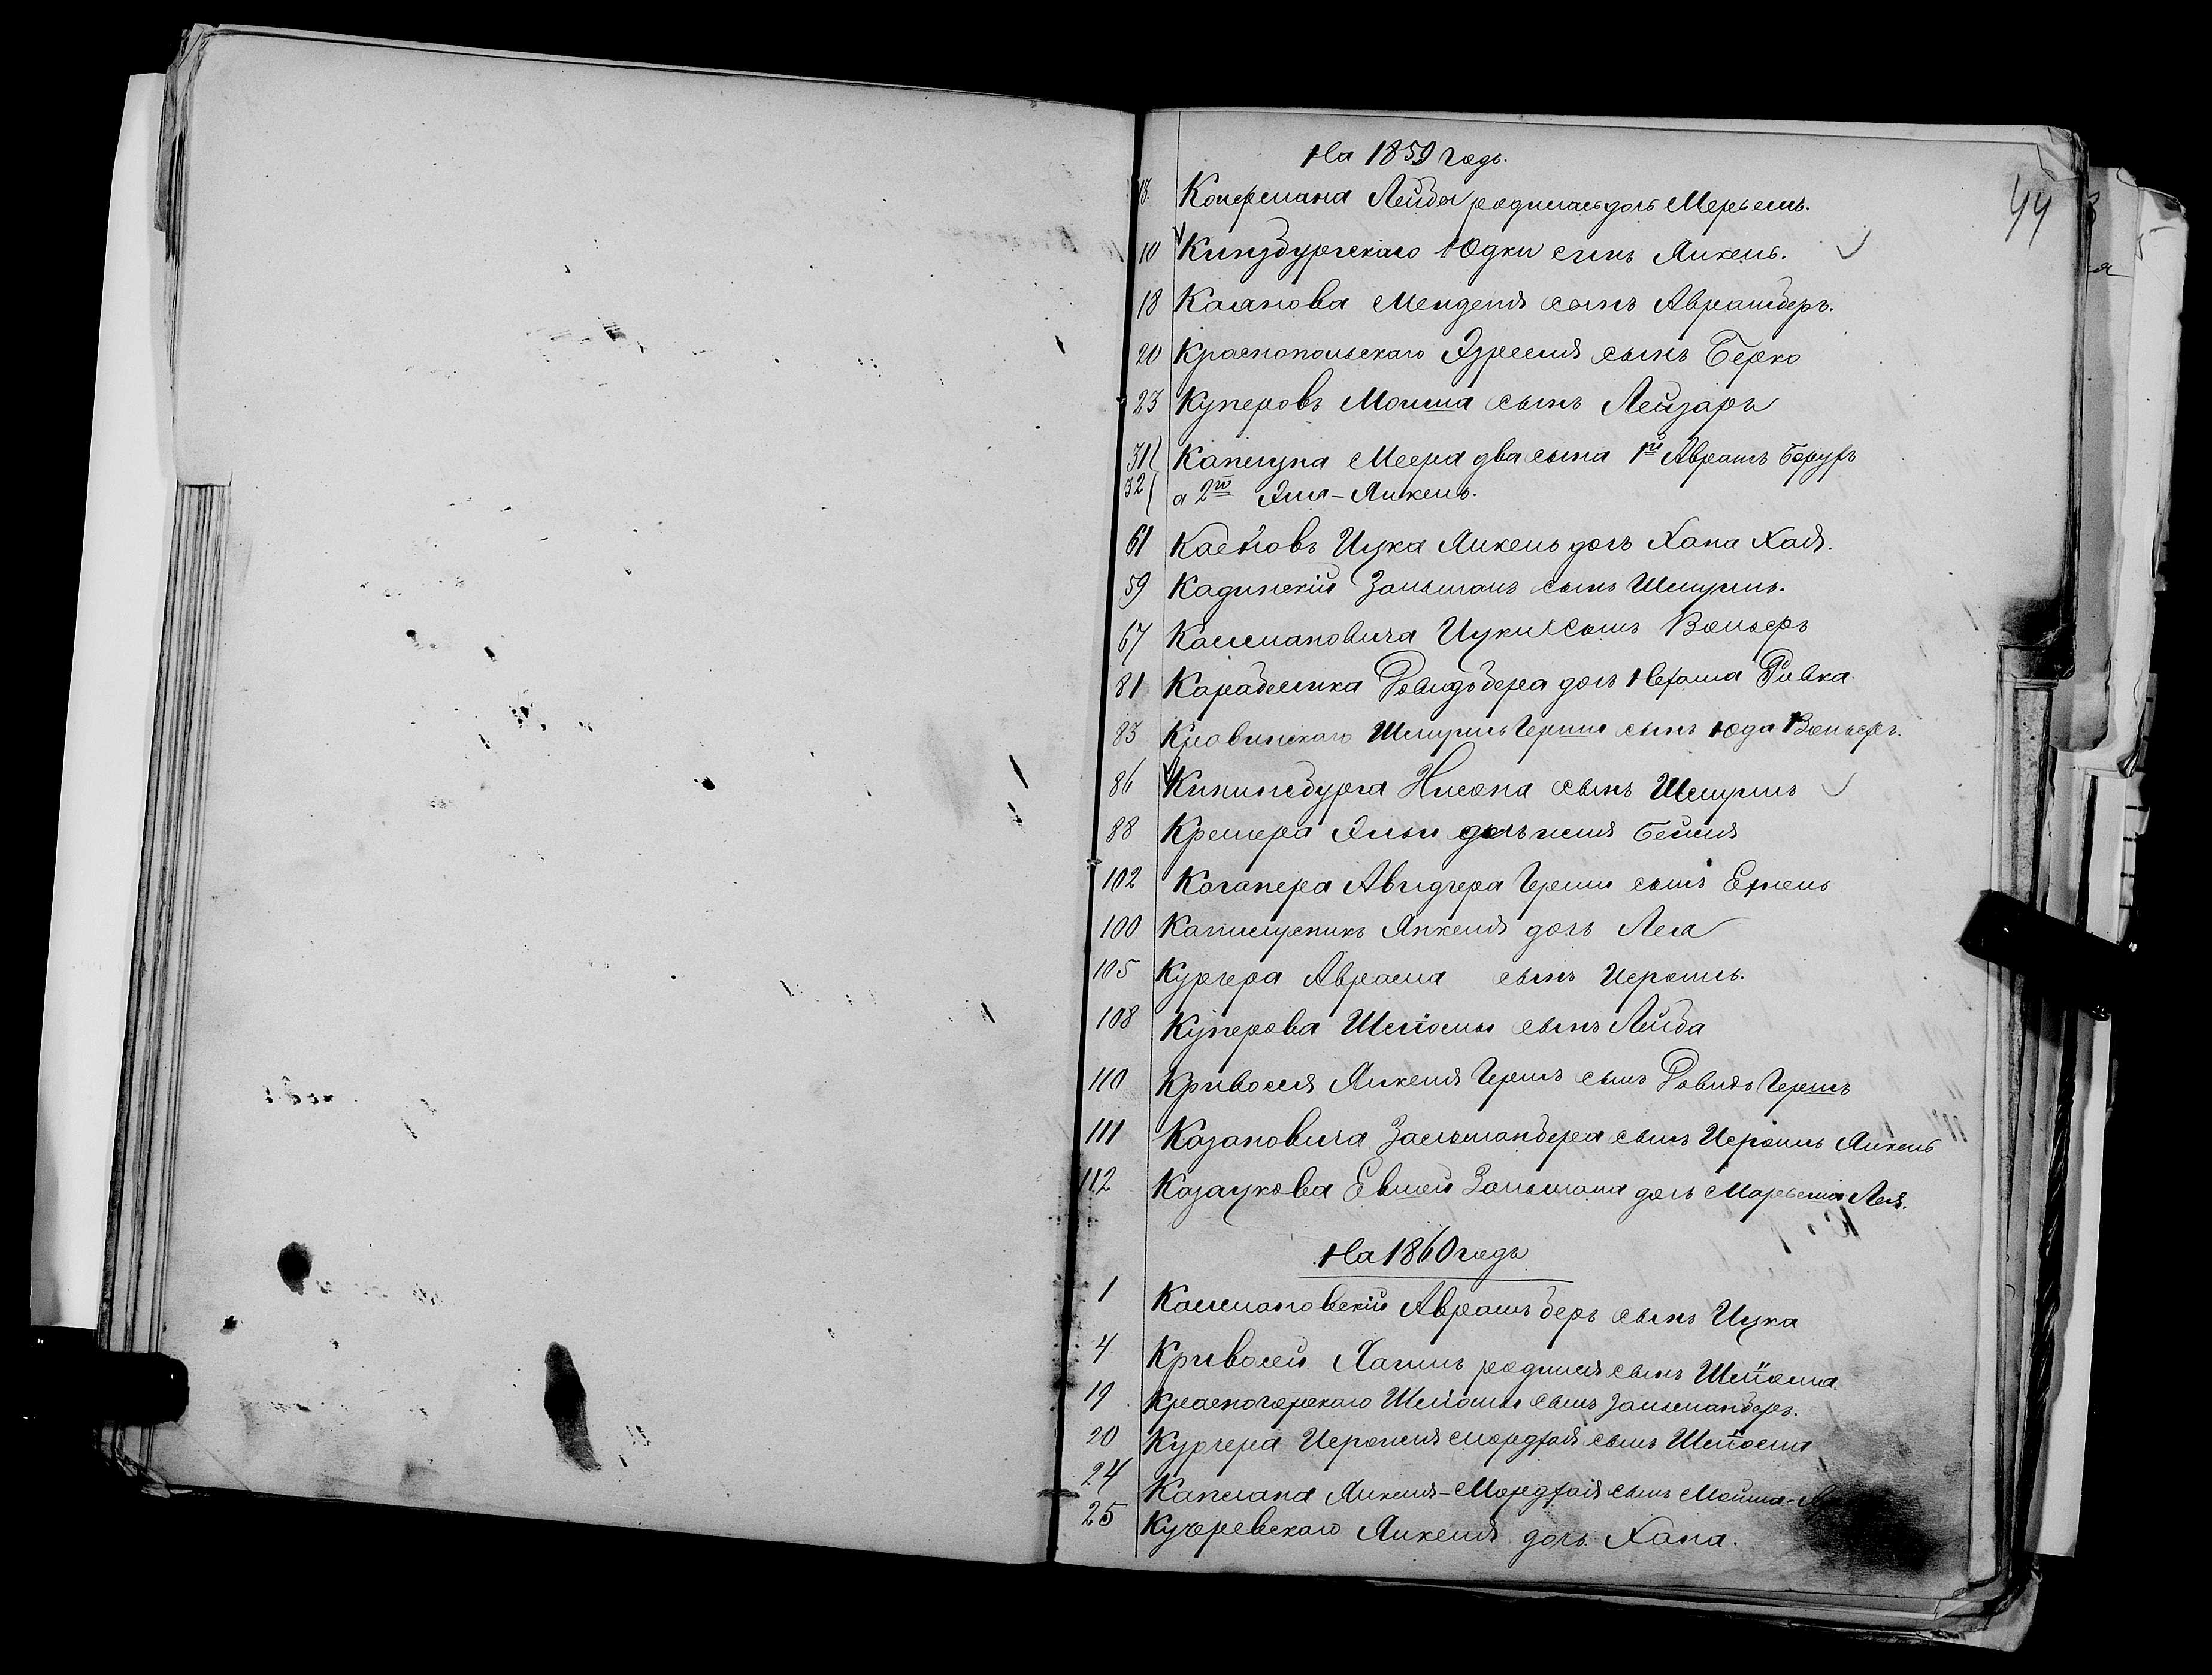 На 1859 годъ.
44
13. Лейба родилась дочь Мерьемъ.
10 Кинзбургскаго Юдки сынъ Янкель.
18 Каганова Менделя сынъ Аврамберъ.
20 Краснопольскаго Эзреля сынъ Берко
23 Куперовъ Мошка сынъ Лейзаръ
31 Каплуна Меера два сына 1й Аврамъ Борухъ
32 а 2й Эля-Янкель.
61 Ицка Янкель дочь Хана Хая.
59 Кадинскій Зальманъ сынъ Шмуиль.
67 Калмановича Ицки сынъ Вольфъ
81 Карабельника Довидъ бера дочь Нехама Ривка.
83 Шмуиль Герши сынъ Юда Вольфъ.
86 Кининсбурга Нисона сынъ Шмуиль
88 Кремера Эльи дочь Бейля
102 Авигдера Герши сынъ
100 Янкеля дочь Лея
105 Кургера Аврама сынъ Исроиль.
108 Куперова Шлiомы сынъ Лейба
110 Кривошея Янкеля Гершъ сынъ Довидъ Гершъ
111 Казановича Залманбера сынъ Исроиль Янкель
112 Казацкова Евсей Зальмана дочь Марьяша Лея.
На 1860 годъ
1 Калмановскій Аврамъ беръ сынъ Ицка
4 Кривошей Хаимъ родился сынъ Шлiома
19 Красногорскаго Шлiомы сынъ Зальманберъ.
20 Кургера Исроиля Мордхая сынъ Шлiома
24 Каплана Янкеля-Мордхая сынъ Мошка-
25 Кучеревскаго Янкеля дочь Хана.